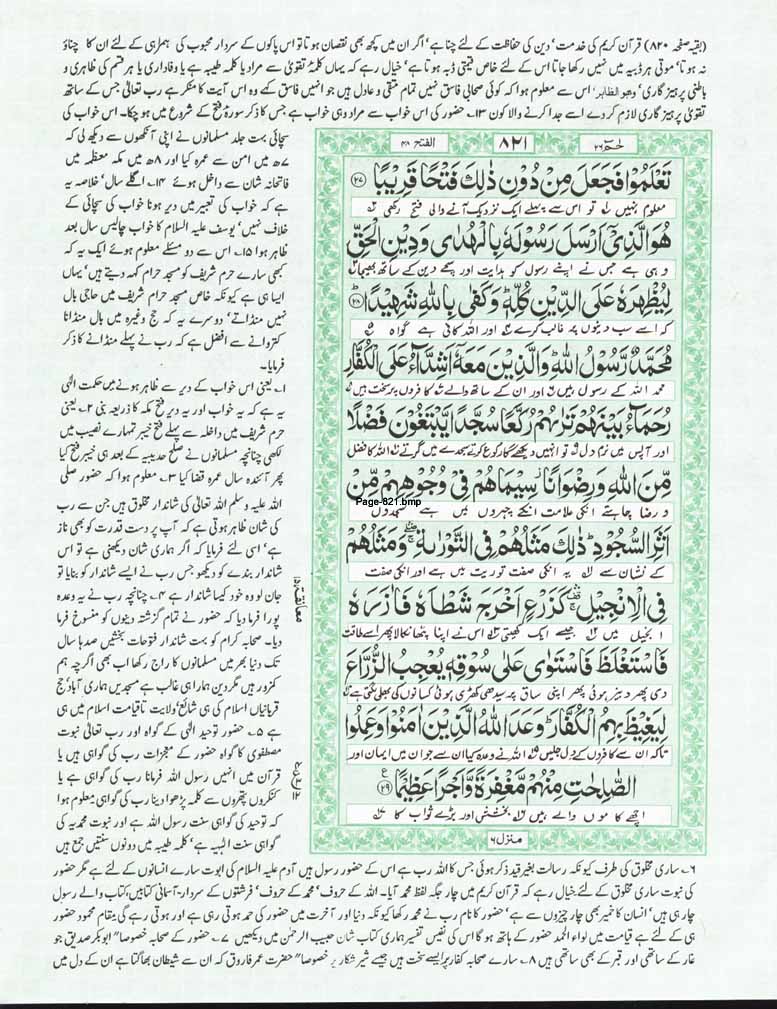 (بقیہ صفحہ ۸۲۰) قرآن کریم کی خدمت' دین کی حفاظت کے لئے چنا ہے' اگر ان میں کچھ بھی نقصان ہوتا تو اس پاکوں کے سردار محبوب کی ہمراہی کے لئے ان کا چناؤ
نہ ہوتا' موتی ہر ڈبیہ میں نہیں رکھا جاتا اس کے لئے خاص قیمتی ڈبہ ہوتا ہے' خیال رہے کہ یہاں کلمۂ تقویٰ سے مراد یا کلمہ طیبہ ہے یا وفاداری یا ہر قسم کی ظاہری و
باطنی پرہیز گاری' وهو الظاهر' اس سے معلوم ہوا کہ کوئی صحابی فاسق نہیں تمام متقی و عادل ہیں جو انہیں فاسق کہے وہ اس آیت کا منکر ہے رب تعالیٰ جس کے ساتھ
تقویٰ پرہیز گاری لازم کر دے اسے جدا کرنے والا کون ۱۳۔ حضور کی اس خواب سے مراد وہی خواب ہے جس کا ذکر سورۂ فتح کے شروع میں ہو چکا۔ اس خواب کی
سچائی بہت جلد مسلمانوں نے اپنی آنکھوں سے دیکھ لی کہ
۷ھ میں امن سے عمرہ کیا اور ۸ھ میں مکہ معظمہ میں
فاتحانہ شان سے داخل ہوئے ۱۴۔ اگلے سال' خلاصہ یہ
ہے کہ خواب کی تعبیر میں دیر ہونا خواب کی سچائی کے
خلاف نہیں' یوسف علیہ السلام کا خواب چالیس سال بعد
ظاہر ہوا ۱۵۔ اس سے دو مسئلے معلوم ہوئے ایک یہ کہ
کبھی سارے حرم شریف کو مسجد حرام کہہ دیتے ہیں' یہاں
ایسا ہی ہے کیونکہ خاص مسجد حرام شریف میں حاجی بال
نہیں منڈاتے' دوسرے یہ کہ حج وغیرہ میں بال منڈانا
کتروانے سے افضل ہے کہ رب نے پہلے منڈانے کا ذکر
فرمایا۔
۱۔ یعنی اس خواب کے دیر سے ظاہر ہونے میں حکمت الٰہی
یہ ہے کہ یہ خواب اور یہ دیر فتح مکہ کا ذریعہ بنی ۲۔ یعنی
حرم شریف میں داخلہ سے پہلے فتح خیبر تمہارے نصیب میں
لکھی چنانچہ مسلمانوں نے صلح حدیبیہ کے بعد ہی خیبر فتح کیا
پھر آئندہ سال عمرہ قضا کیا ۳۔ معلوم ہوا کہ حضور صلی
اللہ علیہ وسلم اللہ تعالیٰ کی شاندار مخلوق ہیں جن سے رب
کی شان ظاہر ہوتی ہے کہ آپ پر دست قدرت کو بھی ناز
ہے' اسی لئے فرمایا کہ اگر ہماری شان دیکھنی ہے تو اس
شاندار بندے کو دیکھو جس رب نے ایسے شاندار کو بنایا تو
جان لو وہ خود کیسا شاندار ہے ۴۔ چنانچہ رب نے یہ وعدہ
پورا فرما دیا کہ حضور نے تمام گزشتہ دینوں کو منسوخ فرما
دیا۔ صحابہ کرام کو بہت شاندار فتوحات بخشیں صدہا سال
تک دنیا بھر میں مسلمانوں کا راج رکھا اب بھی اگرچہ ہم
کمزور ہیں مگر دین ہمارا ہی غالب ہے مسجدیں ہماری آباد' حج
قربانیاں اسلام کی ہی شائع' ولایت تاقیامت اسلام میں ہی
ہے ۵۔ حضور توحید الٰہی کے گواہ اور رب تعالیٰ نبوت
مصطفوی کا گواہ حضور کے معجزات رب کی گواہی ہیں یا
قرآن میں انہیں رسول اللہ فرمانا رب کی گواہی ہے یا
کنکروں پتھروں سے کلمہ پڑھوا دینا رب کی گواہی معلوم ہوا
کہ توحید کی گواہی سنت رسول اللہ ہے اور نبوت محمدیہ کی
گواہی سنت الٰہیہ ہے' کلمہ طیبہ میں دونوں سنتیں جمع ہیں
حٰم ۲۶
۸۲۱
الفتح ۴۸
تَعْلَمُوْا فَجَعَلَ مِنْ دُوْنِ ذٰلِكَ فَتْحًا قَرِيْبًا ۝۲۷
معلوم نہیں تو اس سے پہلے ایک نزدیک آنے والی فتح رکھی
هُوَ الَّذِيْٓ اَرْسَلَ رَسُوْلَهٗ بِالْهُدٰى وَدِيْنِ الْحَقِّ
وہی ہے جس نے اپنے رسول کو ہدایت اور سچے دین کے ساتھ بھیجا
لِيُظْهِرَهٗ عَلَى الدِّيْنِ كُلِّهٖ ؕ وَكَفٰى بِاللّٰهِ شَهِيْدًا ۝۲۸
کہ اسے سب دینوں پر غالب کرے اور اللہ کافی ہے گواہ
مُحَمَّدٌ رَّسُوْلُ اللّٰهِ ؕ وَالَّذِيْنَ مَعَهٗٓ اَشِدَّآءُ عَلَى الْكُفَّارِ
محمد اللہ کے رسول ہیں اور ان کے ساتھ والے کافروں پر سخت ہیں
رُحَمَآءُ بَيْنَهُمْ تَرٰىهُمْ رُكَّعًا سُجَّدًا يَّبْتَغُوْنَ فَضْلًا
اور آپس میں نرم دل تو انہیں دیکھے گا رکوع کرتے سجدے میں گرتے اللہ کا فضل
مِّنَ اللّٰهِ وَرِضْوَانًا ؗ سِيْمَاهُمْ فِيْ وُجُوْهِهِمْ مِّنْ
و رضا چاہتے انکی علامت انکے چہروں میں ہے سجدوں
Page-821.bmp
اَثَرِ السُّجُوْدِ ؕ ذٰلِكَ مَثَلُهُمْ فِي التَّوْرٰىةِ ۛۖ وَمَثَلُهُمْ
کے نشان سے یہ انکی صفت توریت میں ہے اور انکی صفت
فِي الْاِنْجِيْلِ ۛۚ كَزَرْعٍ اَخْرَجَ شَطْـَٔهٗ فَاٰزَرَهٗ
انجیل میں جیسے ایک کھیتی اس نے اپنا پٹھا نکالا پھر اسے طاقت
فَاسْتَغْلَظَ فَاسْتَوٰى عَلٰى سُوْقِهٖ يُعْجِبُ الزُّرَّاعَ
دی پھر دبیز ہوئی پھر اپنی ساق پر سیدھی کھڑی ہوئی کسانوں کی بھلی لگتی ہے
لِيَغِيْظَ بِهِمُ الْكُفَّارَ ؕ وَعَدَ اللّٰهُ الَّذِيْنَ اٰمَنُوْا وَعَمِلُوا
تاکہ ان سے کافروں کے دل جلیں اللہ نے وعدہ کیا ان سے جو ان میں ایمان اور
الصّٰلِحٰتِ مِنْهُمْ مَّغْفِرَةً وَّاَجْرًا عَظِيْمًا ۝۲۹
اچھے کاموں والے ہیں بخشش اور بڑے ثواب کا
منزل ۶
معانقة ۱۵
ع ۱۲
۶۔ ساری مخلوق کی طرف کیونکہ رسالت بغیر قید ذکر ہوئی جس کا اللہ رب ہے اس کے حضور رسول ہیں آدم علیہ السلام کی ابوت سارے انسانوں کے لئے ہے مگر حضور
کی نبوت ساری مخلوق کے لئے خیال رہے کہ قرآن کریم میں چار جگہ لفظ محمد آیا۔ اللہ کے حروف' محمد کے حروف' فرشتوں کے سردار۔ آسمانی کتابیں' کتاب والے رسول
چار ہی ہیں' انسان کا خمیر بھی چار چیزوں سے ہے' حضور کا نام رب نے محمد رکھا کیونکہ دنیا اور آخرت میں حضور کی حمد ہوتی رہی ہے اور ہوتی رہے گی مقام محمود حضور
ہی کے لئے ہے قیامت میں لواء الحمد حضور کے ہاتھ ہو گا اس کی نفیس تفسیر ہماری کتاب شان حبیب الرحمٰن میں دیکھیں ۷۔ حضور کے صحابہ خصوصاً" ابوبکر صدیق جو
غار کے ساتھی اور قبر کے بھی ساتھی ہیں ۸۔ سارے صحابہ کفار پر ایسے سخت ہیں جیسے شیر شکار پر خصوصاً" حضرت عمر فاروق کہ ان سے شیطان بھاگتا ہے ان کے دل میں